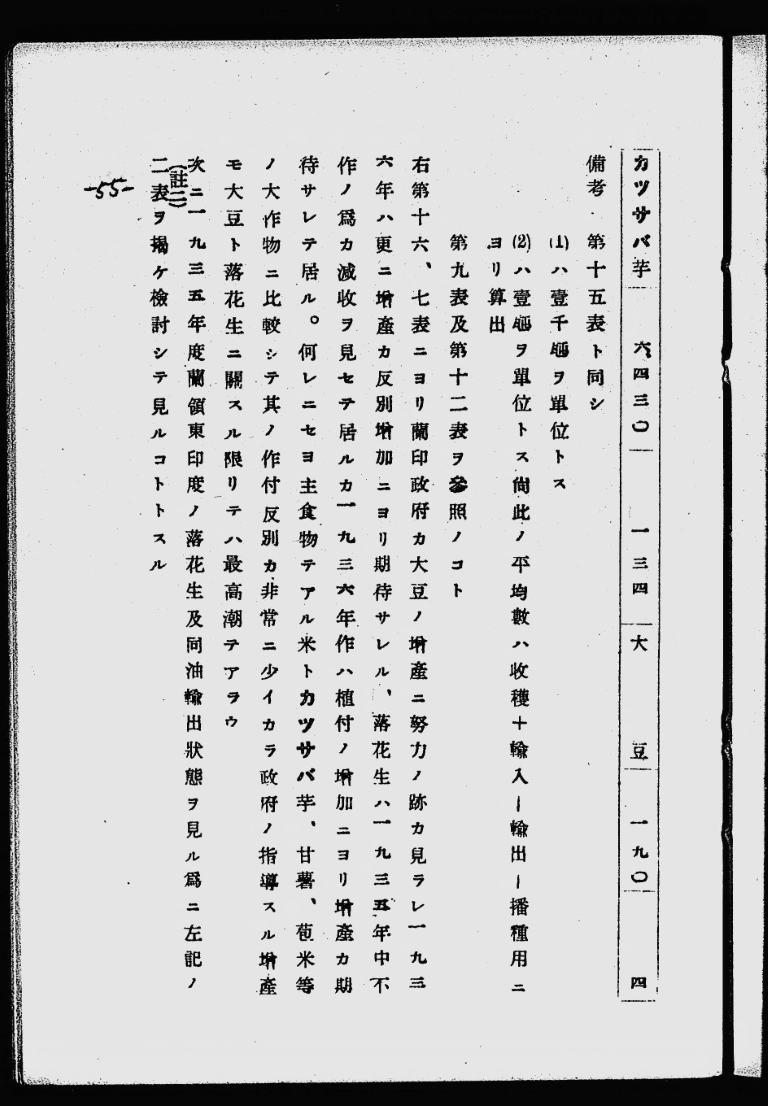 カツサバ芋 六、四三〇 一三四 大豆 一九〇 四
備考 第十五表ト同シ
(1)ハ壹千瓲ヲ單位トス
(2)ハ壹瓲ヲ單位トス尚此ノ平均數ハ收穫十輸入ー輸出ー播種用ニ
ヨリ算出
第九表及第十二表ヲ參照ノコト
右第十六、七表ニヨリ蘭印政府カ大豆ノ增產ニ努力ノ跡カ見ラレ一九三
六年ハ更ニ增產カ反別增加ニヨリ期待サレル、落花生ハ一九三五年中不
作ノ爲カ減收ヲ見セテ居ルカ一九三六年作ハ植付ノ增加ニヨリ增產カ期
待サレテ居ル。何レニセヨ主食物テアル米トカツサバ芋、甘薯、苞米等
ノ大作物ニ比較シテ其ノ作付反別カ非常ニ少イカラ政府ノ指導スル增產
モ大豆ト落花生ニ關スル限リテハ最高潮テアラウ
(註二)
次ニ一九三五年度蘭領東印度ノ落花生及同油輸出狀態ヲ見ル爲ニ左記ノ
二表ヲ揭ケ檢討シテ見ルコトトスル
-55-